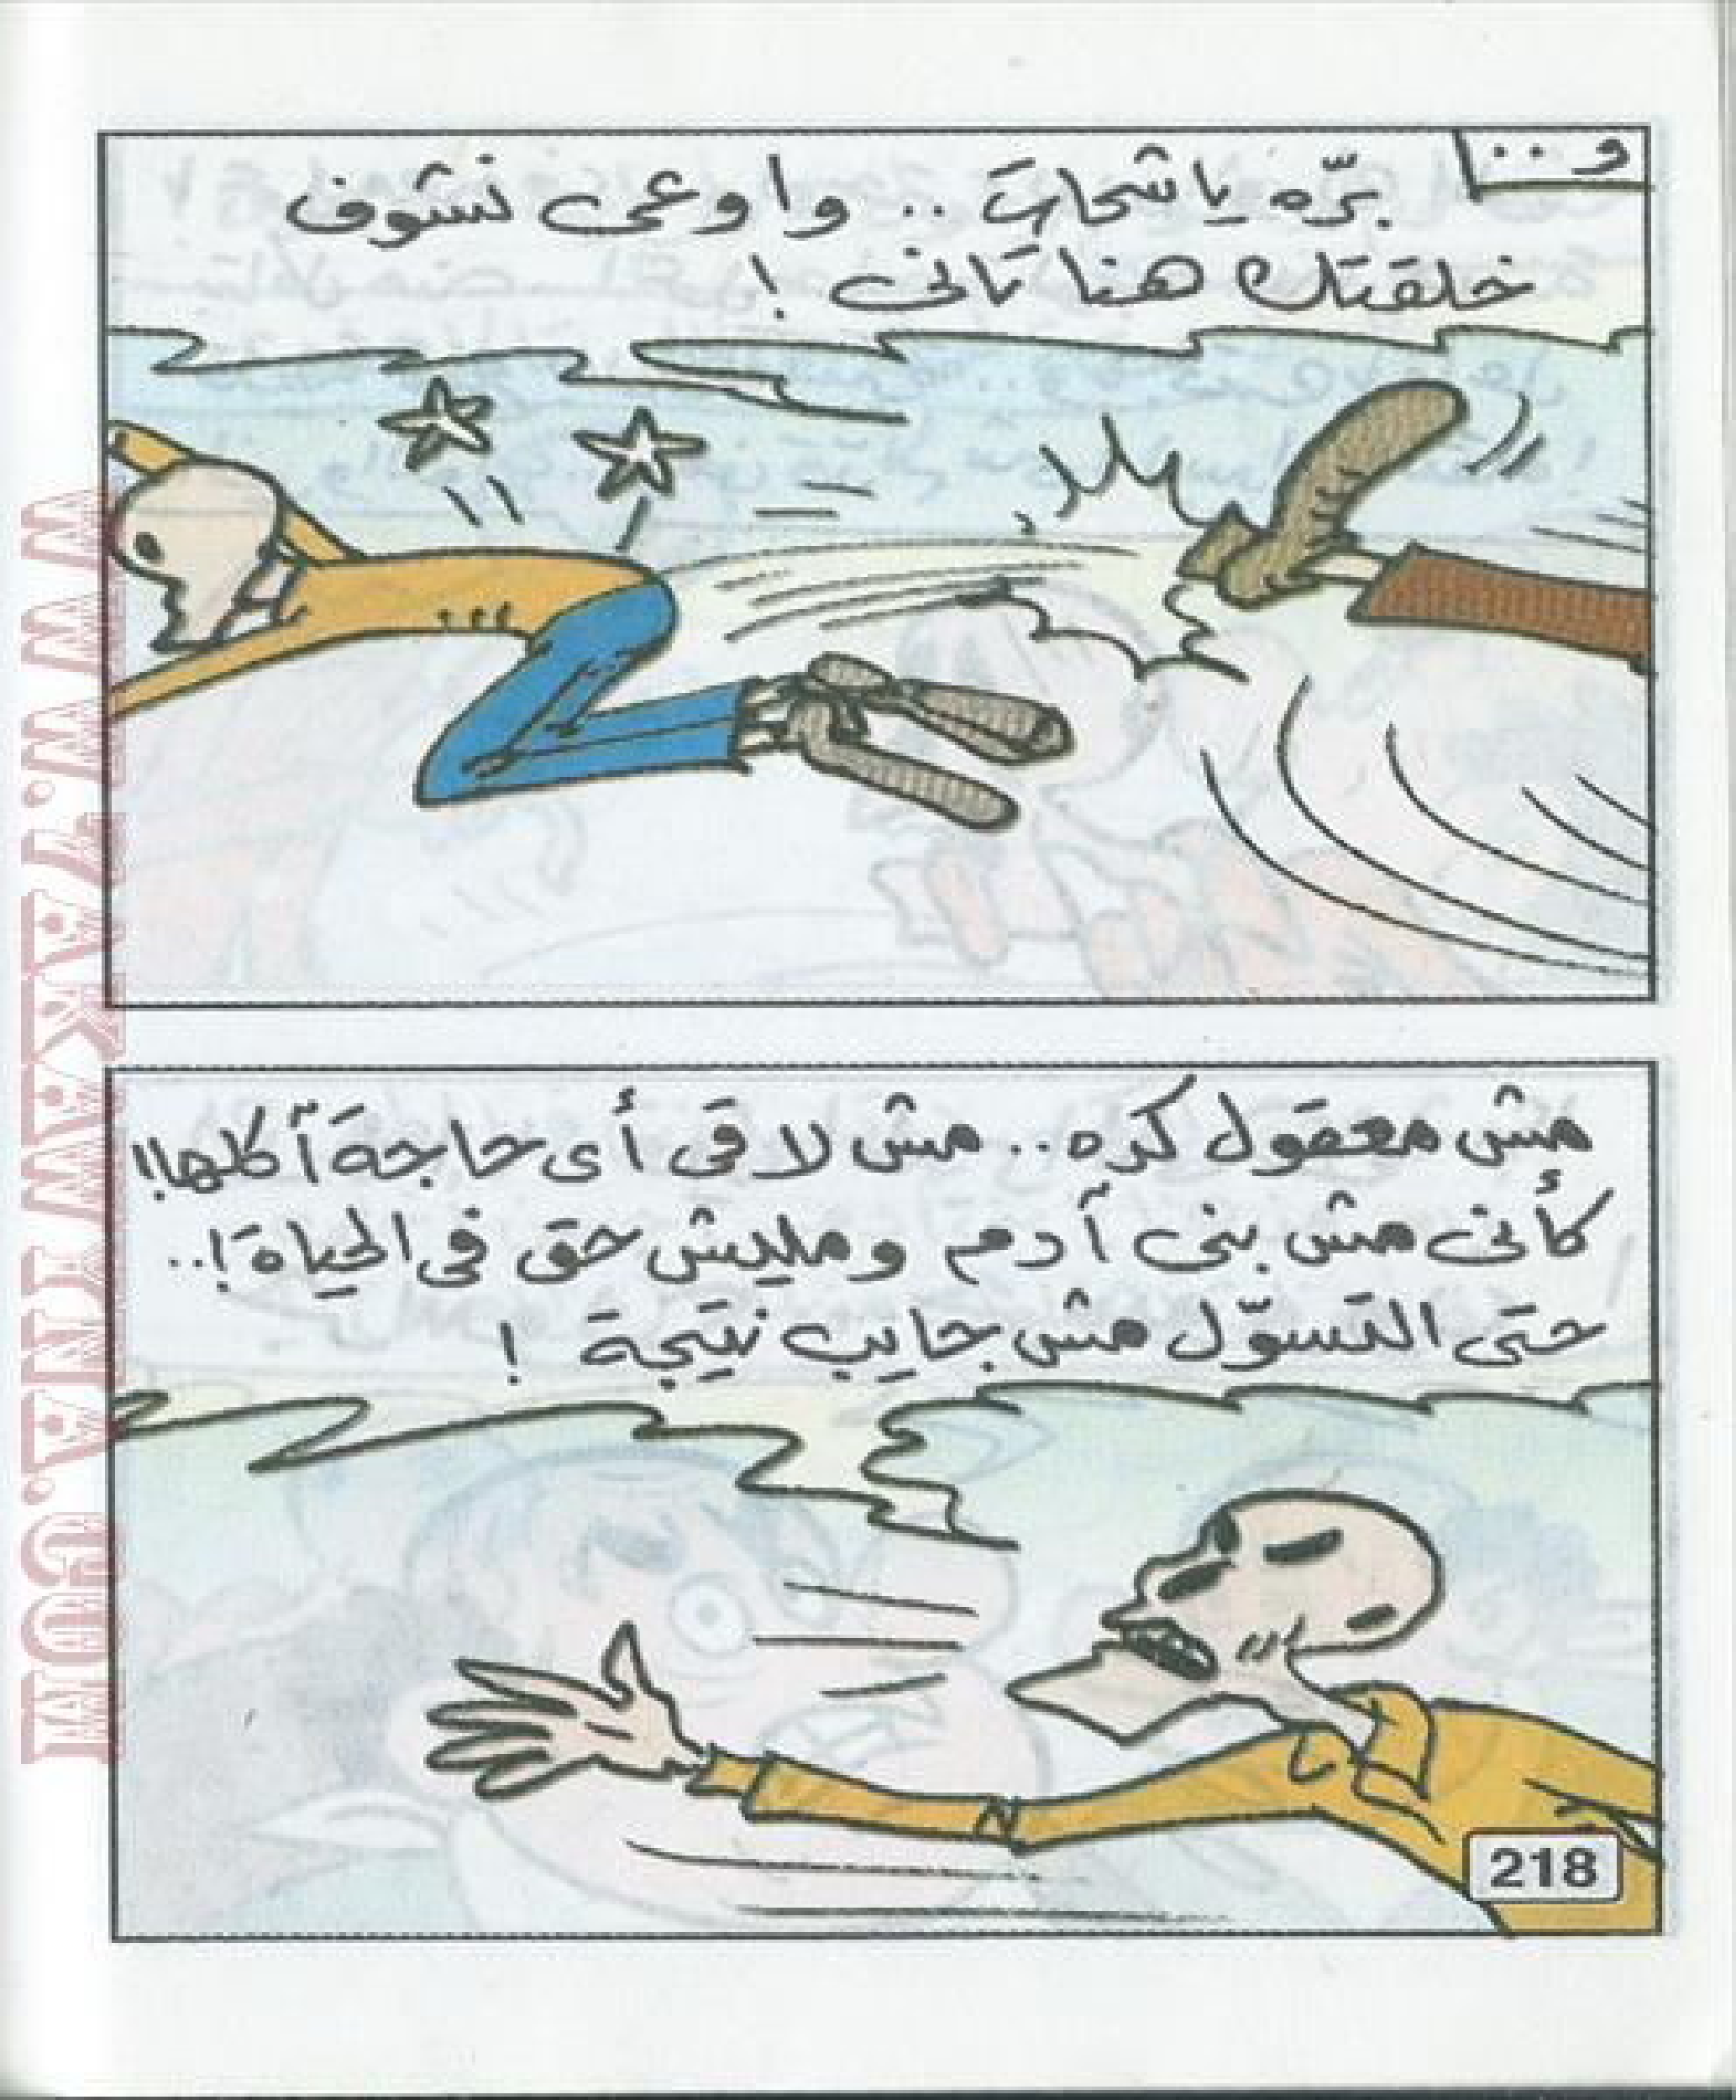 و ..
برّه يا شحات .. واوعى نشوف
خلقتك هنا تانى !
مش معقول كده .. مش لاقى أى حاجة آكلها !!
كأنى مش بنى آدم ومليش حق فى الحياة ! ..
حتى التسوّل مش جايب نتيجة !
218
WWW.7AKAWINA.COM